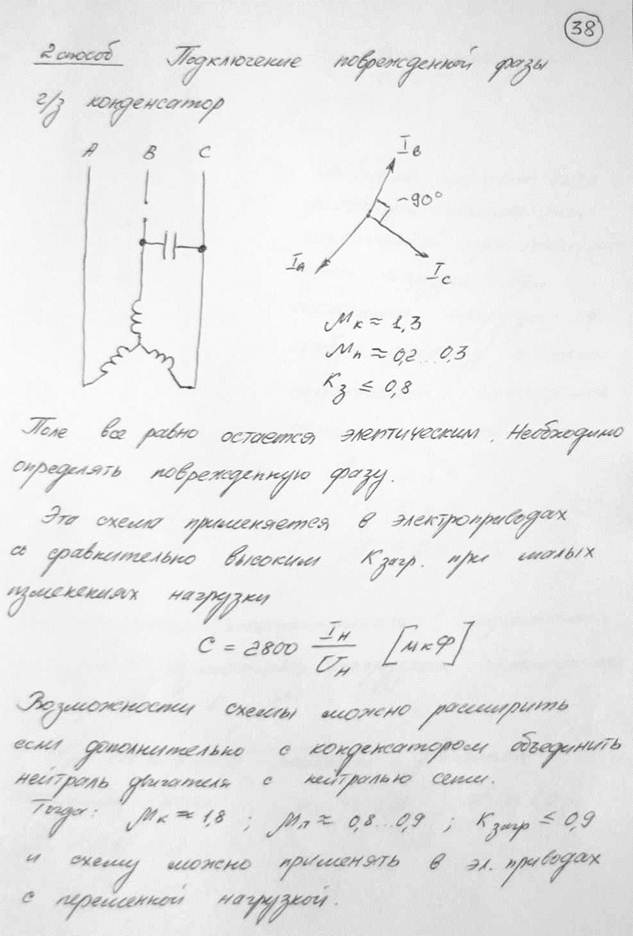 38
2 способ Подключение поврежденной фазы
ч/з конденсатор
A B C
I_B
~90°
I_A
I_C
M_к ≈ 1,3
M_п ≈ 0,2...0,3
K_з ≤ 0,8
Поле все равно остается элептическим. Необходимо
определять поврежденную фазу.
Эта схема применяется в электроприводах
со сравнительно высоким K_загр. при малых
изменениях нагрузки
C = 2800 I_н / U_н [мкФ]
Возможности схемы можно расширить
если дополнительно с конденсатором объединить
нейтраль двигателя с нейтралью сети.
Тогда: M_к ≈ 1,8 ; M_п ≈ 0,8...0,9 ; K_загр ≤ 0,9
и схему можно применять в эл. приводах
с переменной нагрузкой.